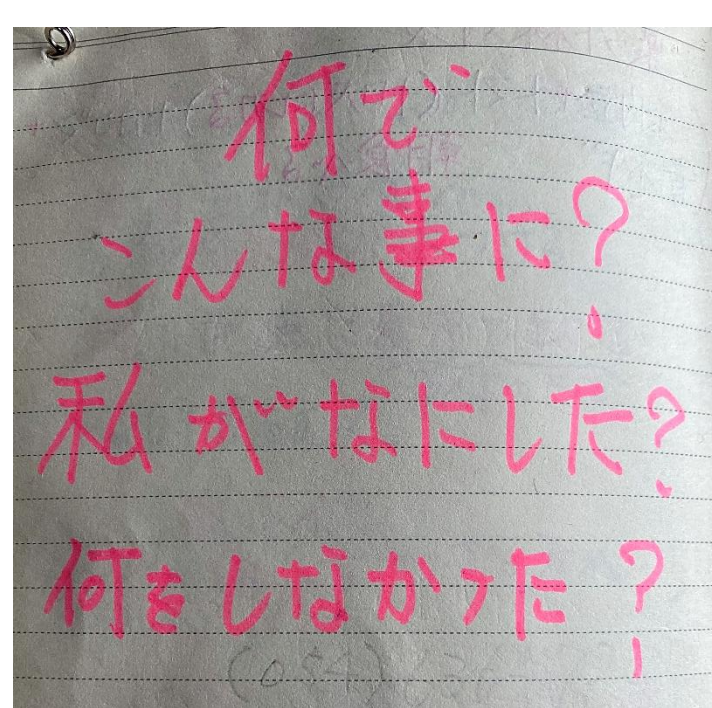 何で
こんな事に?
私がなにした?
何をしなかった?